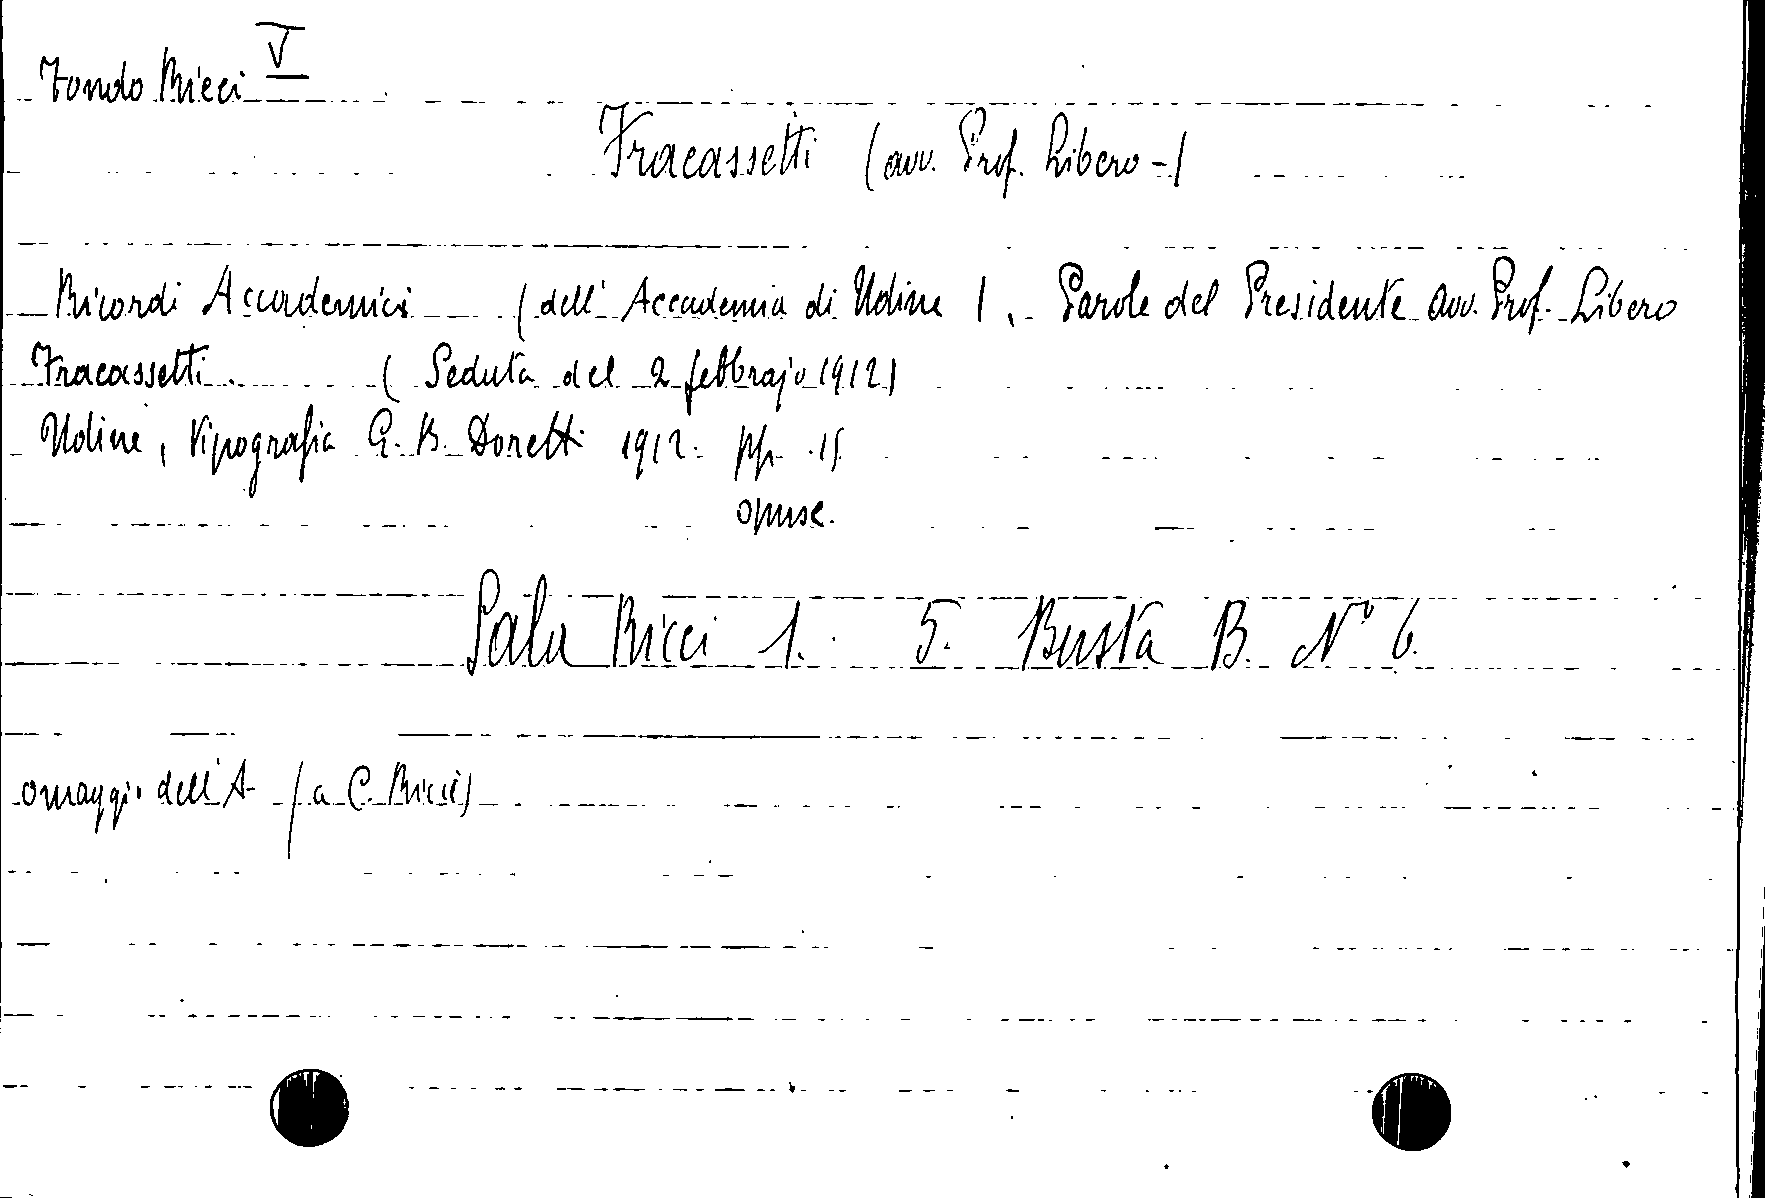 Fondo Ricci V
Fracassetti (avv. Prof. Libero -)
Ricordi Accademici (dell' Accademia di Udine). Parole del Presidente avv. Prof. Libero
Fracassetti. (Seduta del 2 febbrajo 1912)
Udine, tipografia G. B. Doretti 1912. pp. 15
opusc.
Sala Ricci 1. 5. Busta B. N° 6.
omaggio dell'A (a C. Ricci)